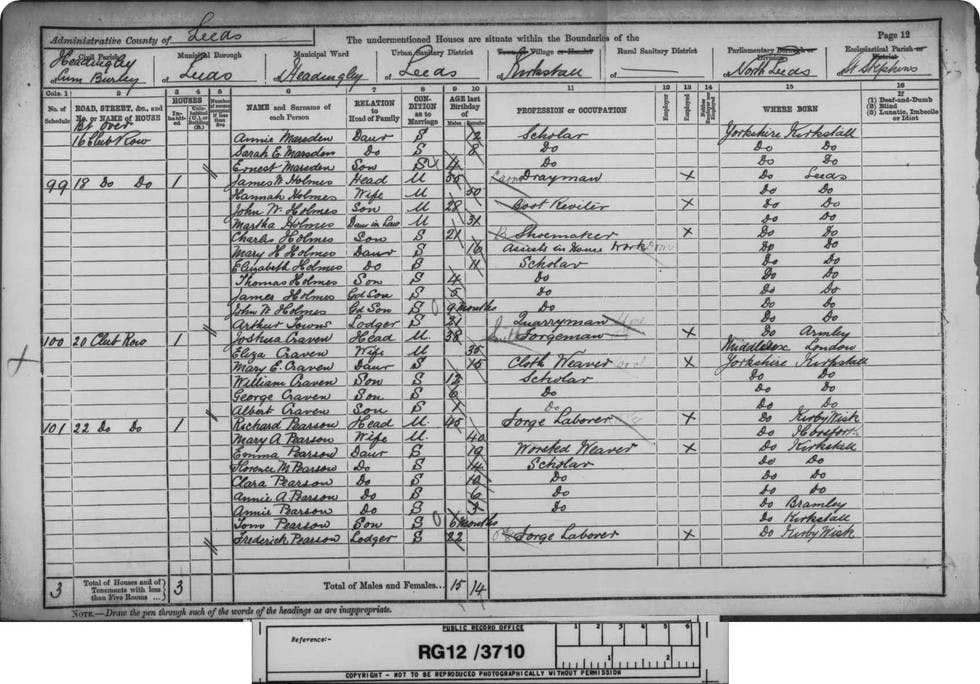 Administrative County of Leeds
The undermentioned Houses are situate within the Boundaries of the
Page 12
Civil Parish
Municipal Borough
Municipal Ward
Urban Sanitary District
Town or Village or Hamlet
Rural Sanitary District
Parliamentary Borough or Division
Ecclesiastical Parish or District
Headingley Cum Burley
Leeds
Headingley
Leeds
Kirkstall
North Leeds
St Stephens
Cols. 1 2 3 4 5 6 7 8 9 10 11 12 13 14 15 16
No. of Schedule
ROAD, STREET, &c., and No. or NAME of HOUSE
HOUSES
NAME and Surname of each Person
RELATION to Head of Family
CONDITION as to Marriage
AGE last Birthday of
Males Females
PROFESSION or OCCUPATION
Employer
Employed
WHERE BORN
(1) Deaf-and-Dumb
(2) Blind
(3) Lunatic, Imbecile or Idiot
16 Club Row Annie Marsden Daur S 12 Scholar Yorkshire Kirkstall
Sarah E Marsden Do S 8 Do Do Do
Ernest Marsden Son S 4 Do Do Do
99 18 Do Do 1 James W Holmes Head M Drayman X Do Leeds
Hannah Holmes Wife M 50 Do Do
John W. Holmes Son M 28 Boot Riveter X Do Do
Martha Holmes Daur in Law M 31 Do Do
Charles Holmes Son S 21 Shoemaker X Do Do
Mary H Holmes Daur S 16 Assists in House Work Do Do
Elizabeth Holmes Do S 11 Scholar Do Do
Thomas Holmes Son S 4 Do Do Do
James Holmes Gd Son S 5 Do Do Do
John W Holmes Gd Son S 9 months Do Do Do
Arthur Towns Lodger S 21 Quarryman Do Do
100 20 Club Row 1 Joshua Craven Head M 38 Forgeman X Do Armley
Eliza Craven Wife M Middlesex London
Mary E. Craven Daur S 15 Cloth Weaver X Yorkshire Kirkstall
William Craven Son S 12 Scholar Do Do
George Craven Son S 6 Do Do Do
Albert Craven Son S 1 Do Do Do
101 22 Do Do 1 Richard Pearson Head M 45 Forge Laborer X Do Kirby Wisk
Mary A Pearson Wife M 40 Do Horsforth
Emma Pearson Daur S 19 Worsted Weaver X Do Kirkstall
Florence M Pearson Do S 14 Scholar Do Do
Clara Pearson Do S 10 Do Do Do
Annie A Pearson Do S 6 Do Do Do
Annie Pearson Do S 3 Do Do Bramley
Tom Pearson Son S 6 months Do Kirkstall
Frederick Pearson Lodger S 22 Forge Laborer X Do Kirby Wisk
3 Total of Houses and of Tenements with less than Five Rooms ... 3 Total of Males and Females... 15 14
NOTE.—Draw the pen through such of the words of the headings as are inappropriate.
PUBLIC RECORD OFFICE
1 2 3 4 5 6
Reference:-
RG12 /3710
1 2
COPYRIGHT - NOT TO BE REPRODUCED PHOTOGRAPHICALLY WITHOUT PERMISSION